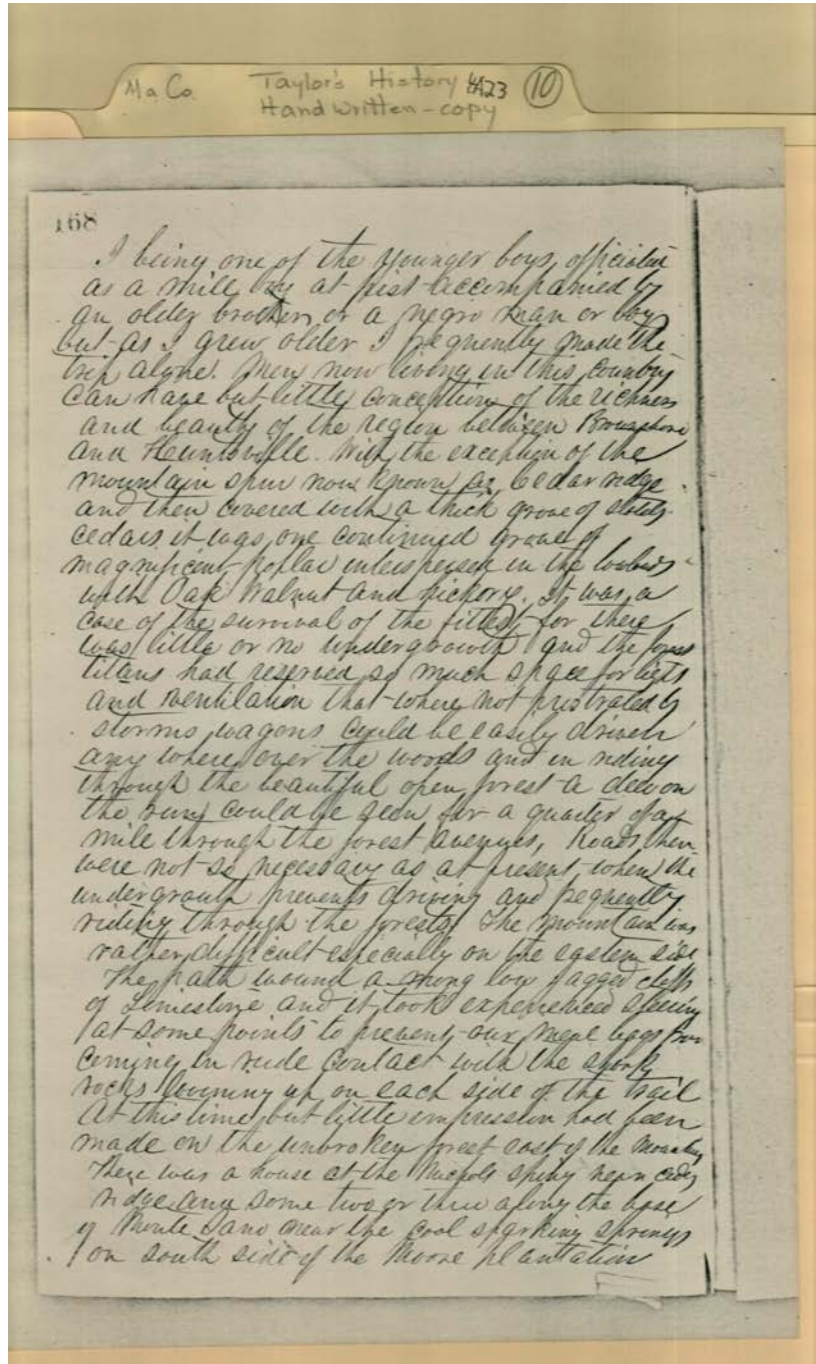 Ma Co. Taylor's History 4A23 10
Hand written - copy
168
I being one of the younger boys, officiated
as a mill boy at first accompanied by
an older brother, or a negro man or boy
but as I grew older I frequently made the
trip alone. Men now living in this country
can have but little conception of the richness
and beauty of the region between Brownsboro
and Huntsville. With the exception of the
mountain spur now known as cedar ridge
and then covered with a thick grove of stately
cedars it was one continued grove of
magnificent poplar interspersed in the lowlands
with Oak Walnut and hickory. It was a
case of the survival of the fittest for there
was little or no undergrowth and the forest
titans had reserved so much space for light
and ventilation that where not prostrated by
storms wagons could be easily driven
any where over the woods and in riding
through the beautiful open forest a deer on
the run could be seen for a quarter of a
mile through the forest avenues, Roads then
were not so necessary as at present, when the
undergrowth prevents driving and frequently
riding through the forests. The mountain was
rather difficult especially on the eastern side
The path wound among low jagged cliffs
of Limestone and it took experienced steering
at some points to prevent our meal bags from
coming in rude contact with the
rocks looming up on each side of the trail
At this time but little impression had been
made on the unbroken forest east of the Mountain
There was a house at the Nichols spring near cedar
ridge and some two or three along the base
of Monte Sano near the cool sparkling springs
on south side of the Moore plantation